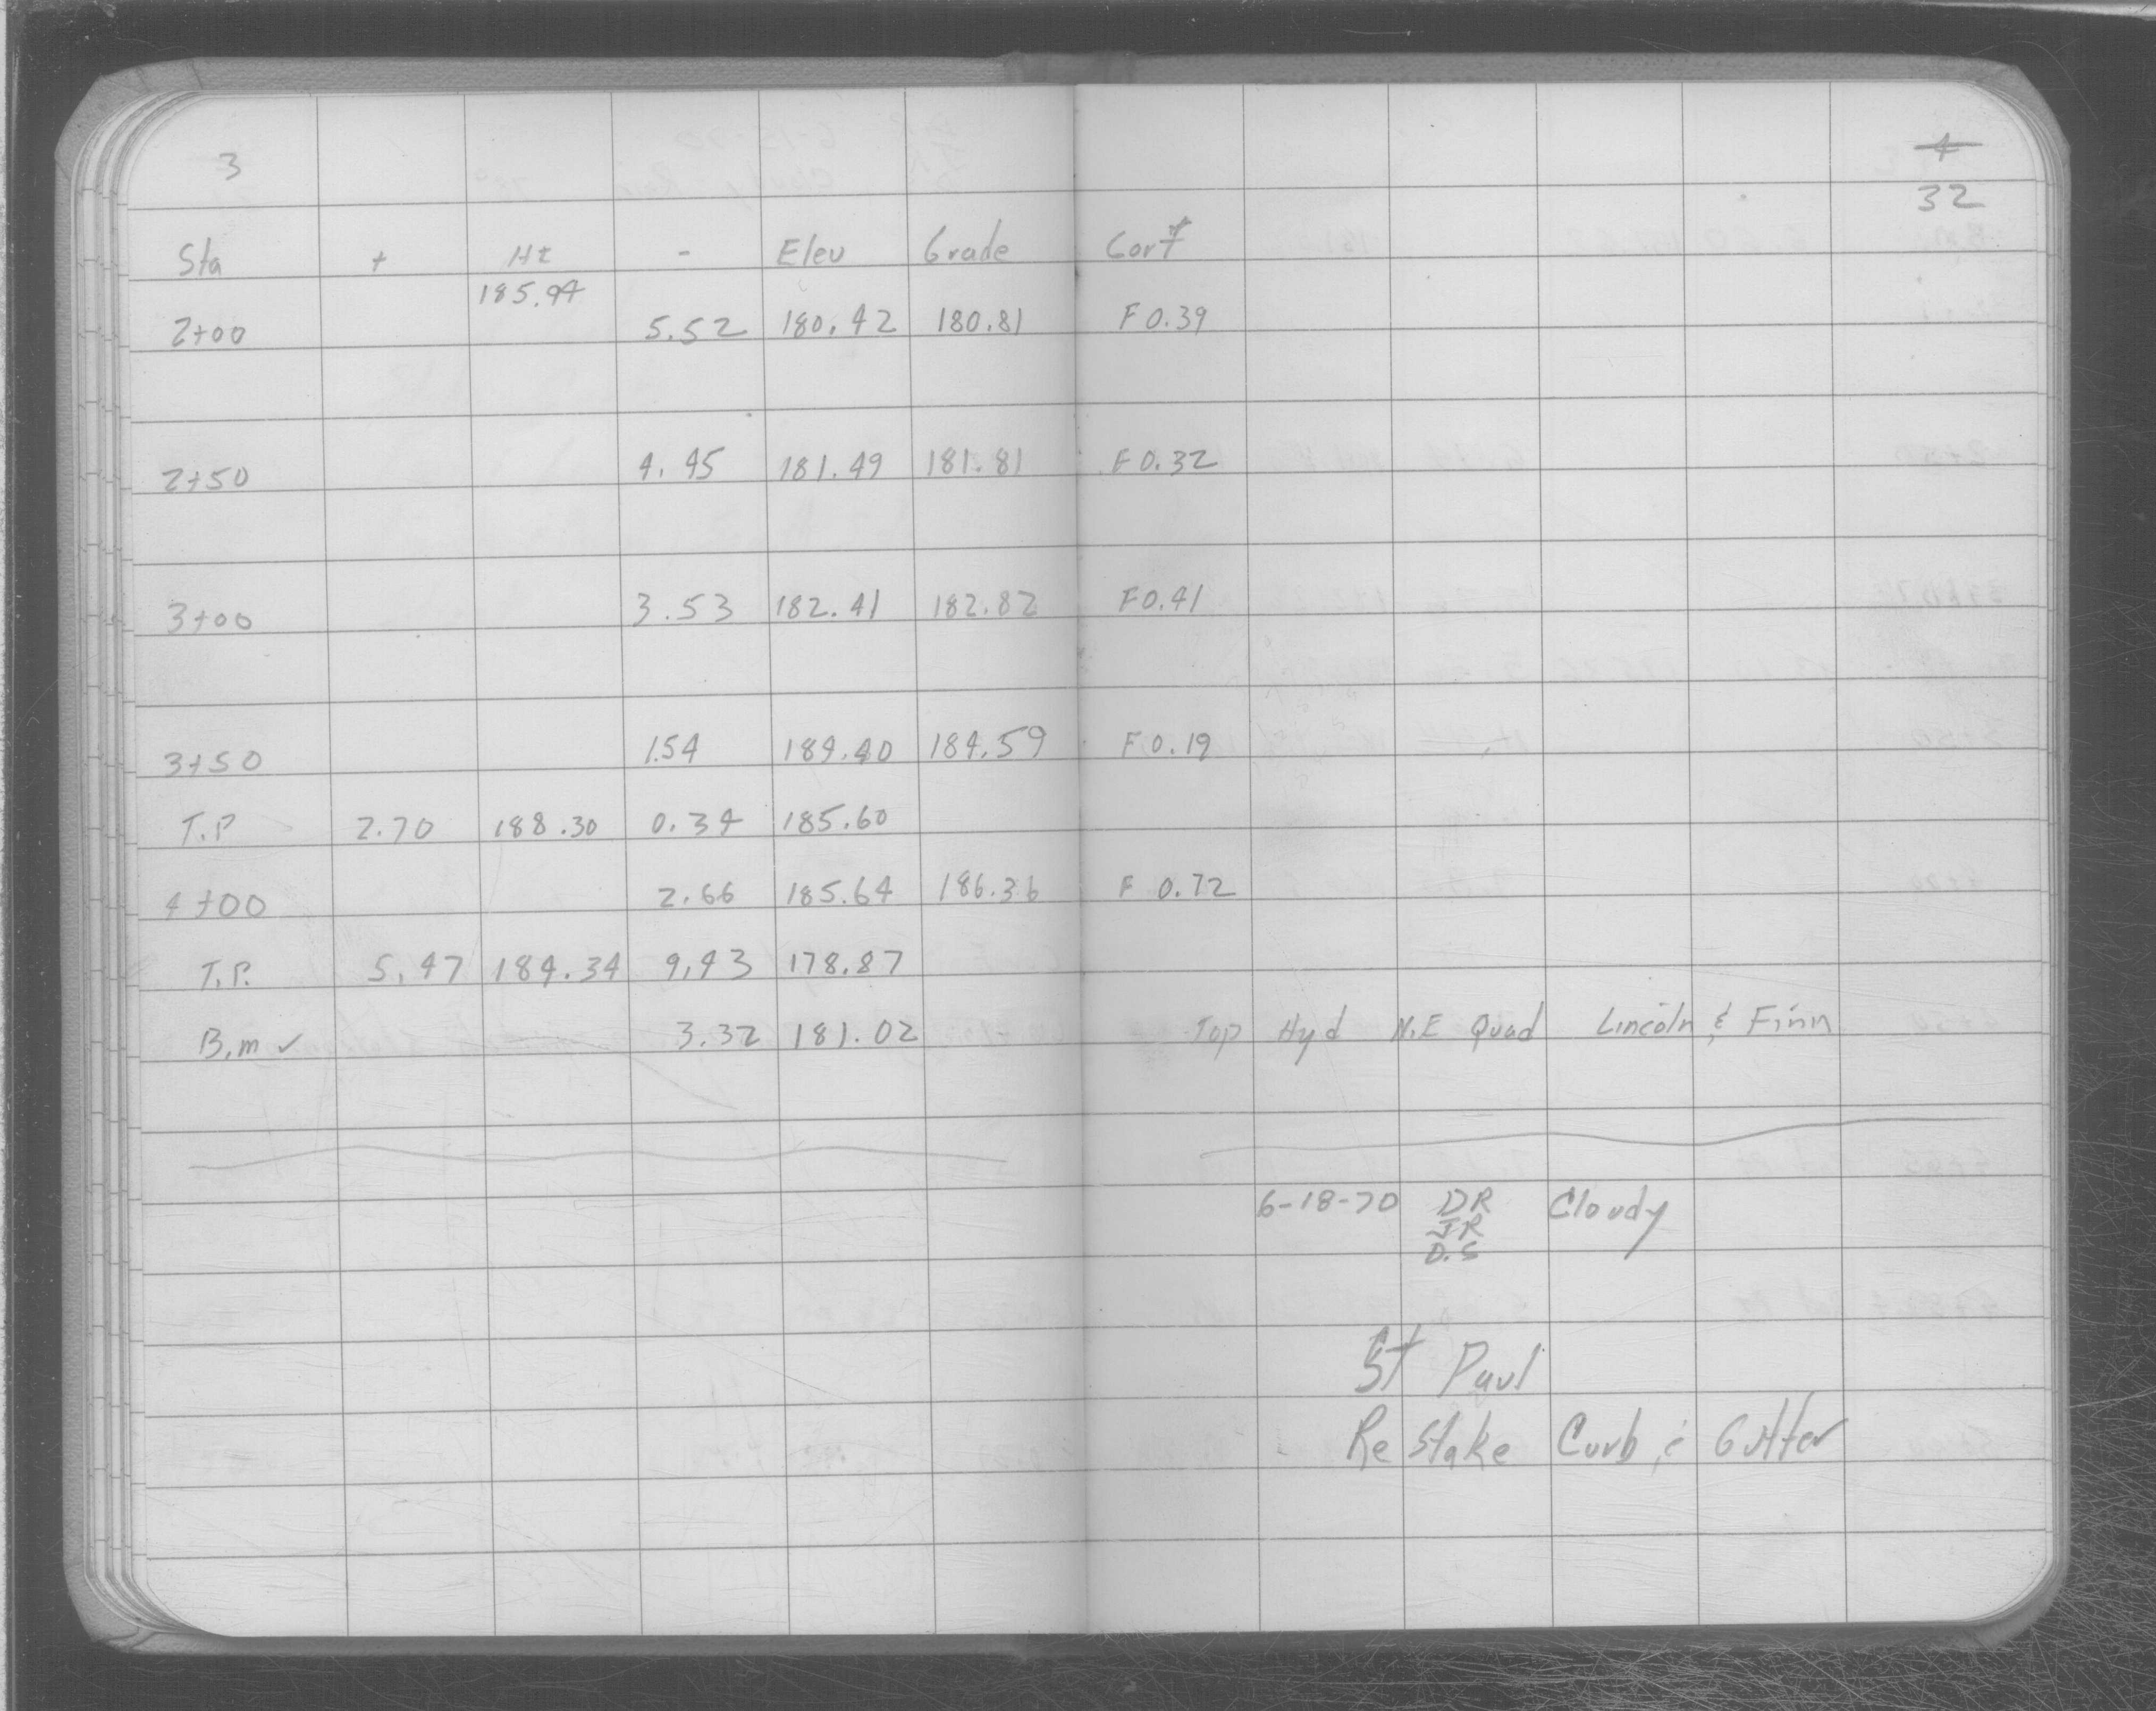 3
4
32
Sta + HI - Elev Grade C or F
185.94
2+00 5.52 180.42 180.81 F 0.39
2+50 4.45 181.49 181.81 F 0.32
3+00 3.53 182.41 182.82 F 0.41
3+50 1.54 184.40 184.59 F 0.19
T.P 2.70 188.30 0.34 185.60
4+00 2.66 185.64 186.36 F 0.72
T.P. 5.47 184.34 9.43 178.87
B.m ✓ 3.32 181.02 Top Hyd N.E Quad Lincoln & Finn
6-18-70 DR Cloudy
JR
D.S
St Paul
Re Stake Curb & Gutter